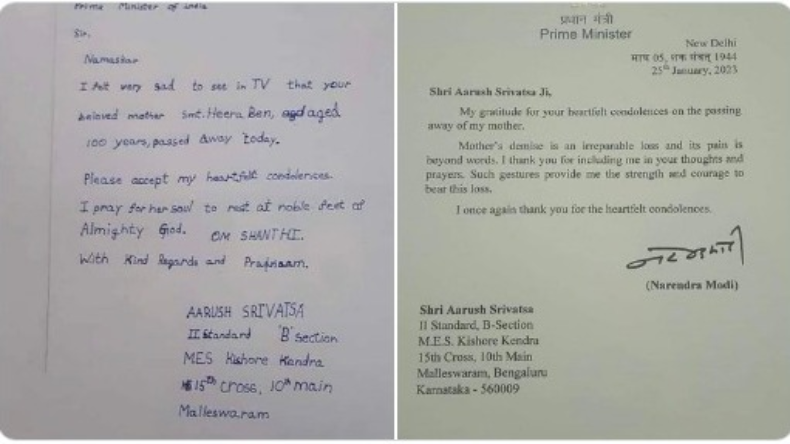 Prime Minister of india
Sir.
Namaskar
I felt very sad to see in TV that your
beloved mother Smt. Heera Ben, aged
100 years, passed away today.
Please accept my heartfelt condolences.
I pray for her soul to rest at noble feet of
Almighty God. OM SHANTHI.
With Kind Regards and Pranaam.
AARUSH SRIVATSA
II Standard 'B' Section
MES Kishore Kendra
15th cross, 10th main
Malleswaram
प्रधान मंत्री
Prime Minister
New Delhi
माघ 05, शक संवत् 1944
25th January, 2023
Shri Aarush Srivatsa Ji,
My gratitude for your heartfelt condolences on the passing
away of my mother.
Mother's demise is an irreparable loss and its pain is
beyond words. I thank you for including me in your thoughts and
prayers. Such gestures provide me the strength and courage to
bear this loss.
I once again thank you for the heartfelt condolences.
(Narendra Modi)
Shri Aarush Srivatsa
II Standard, B-Section
M.E.S. Kishore Kendra
15th Cross, 10th Main
Malleswaram, Bengaluru
Karnataka - 560009